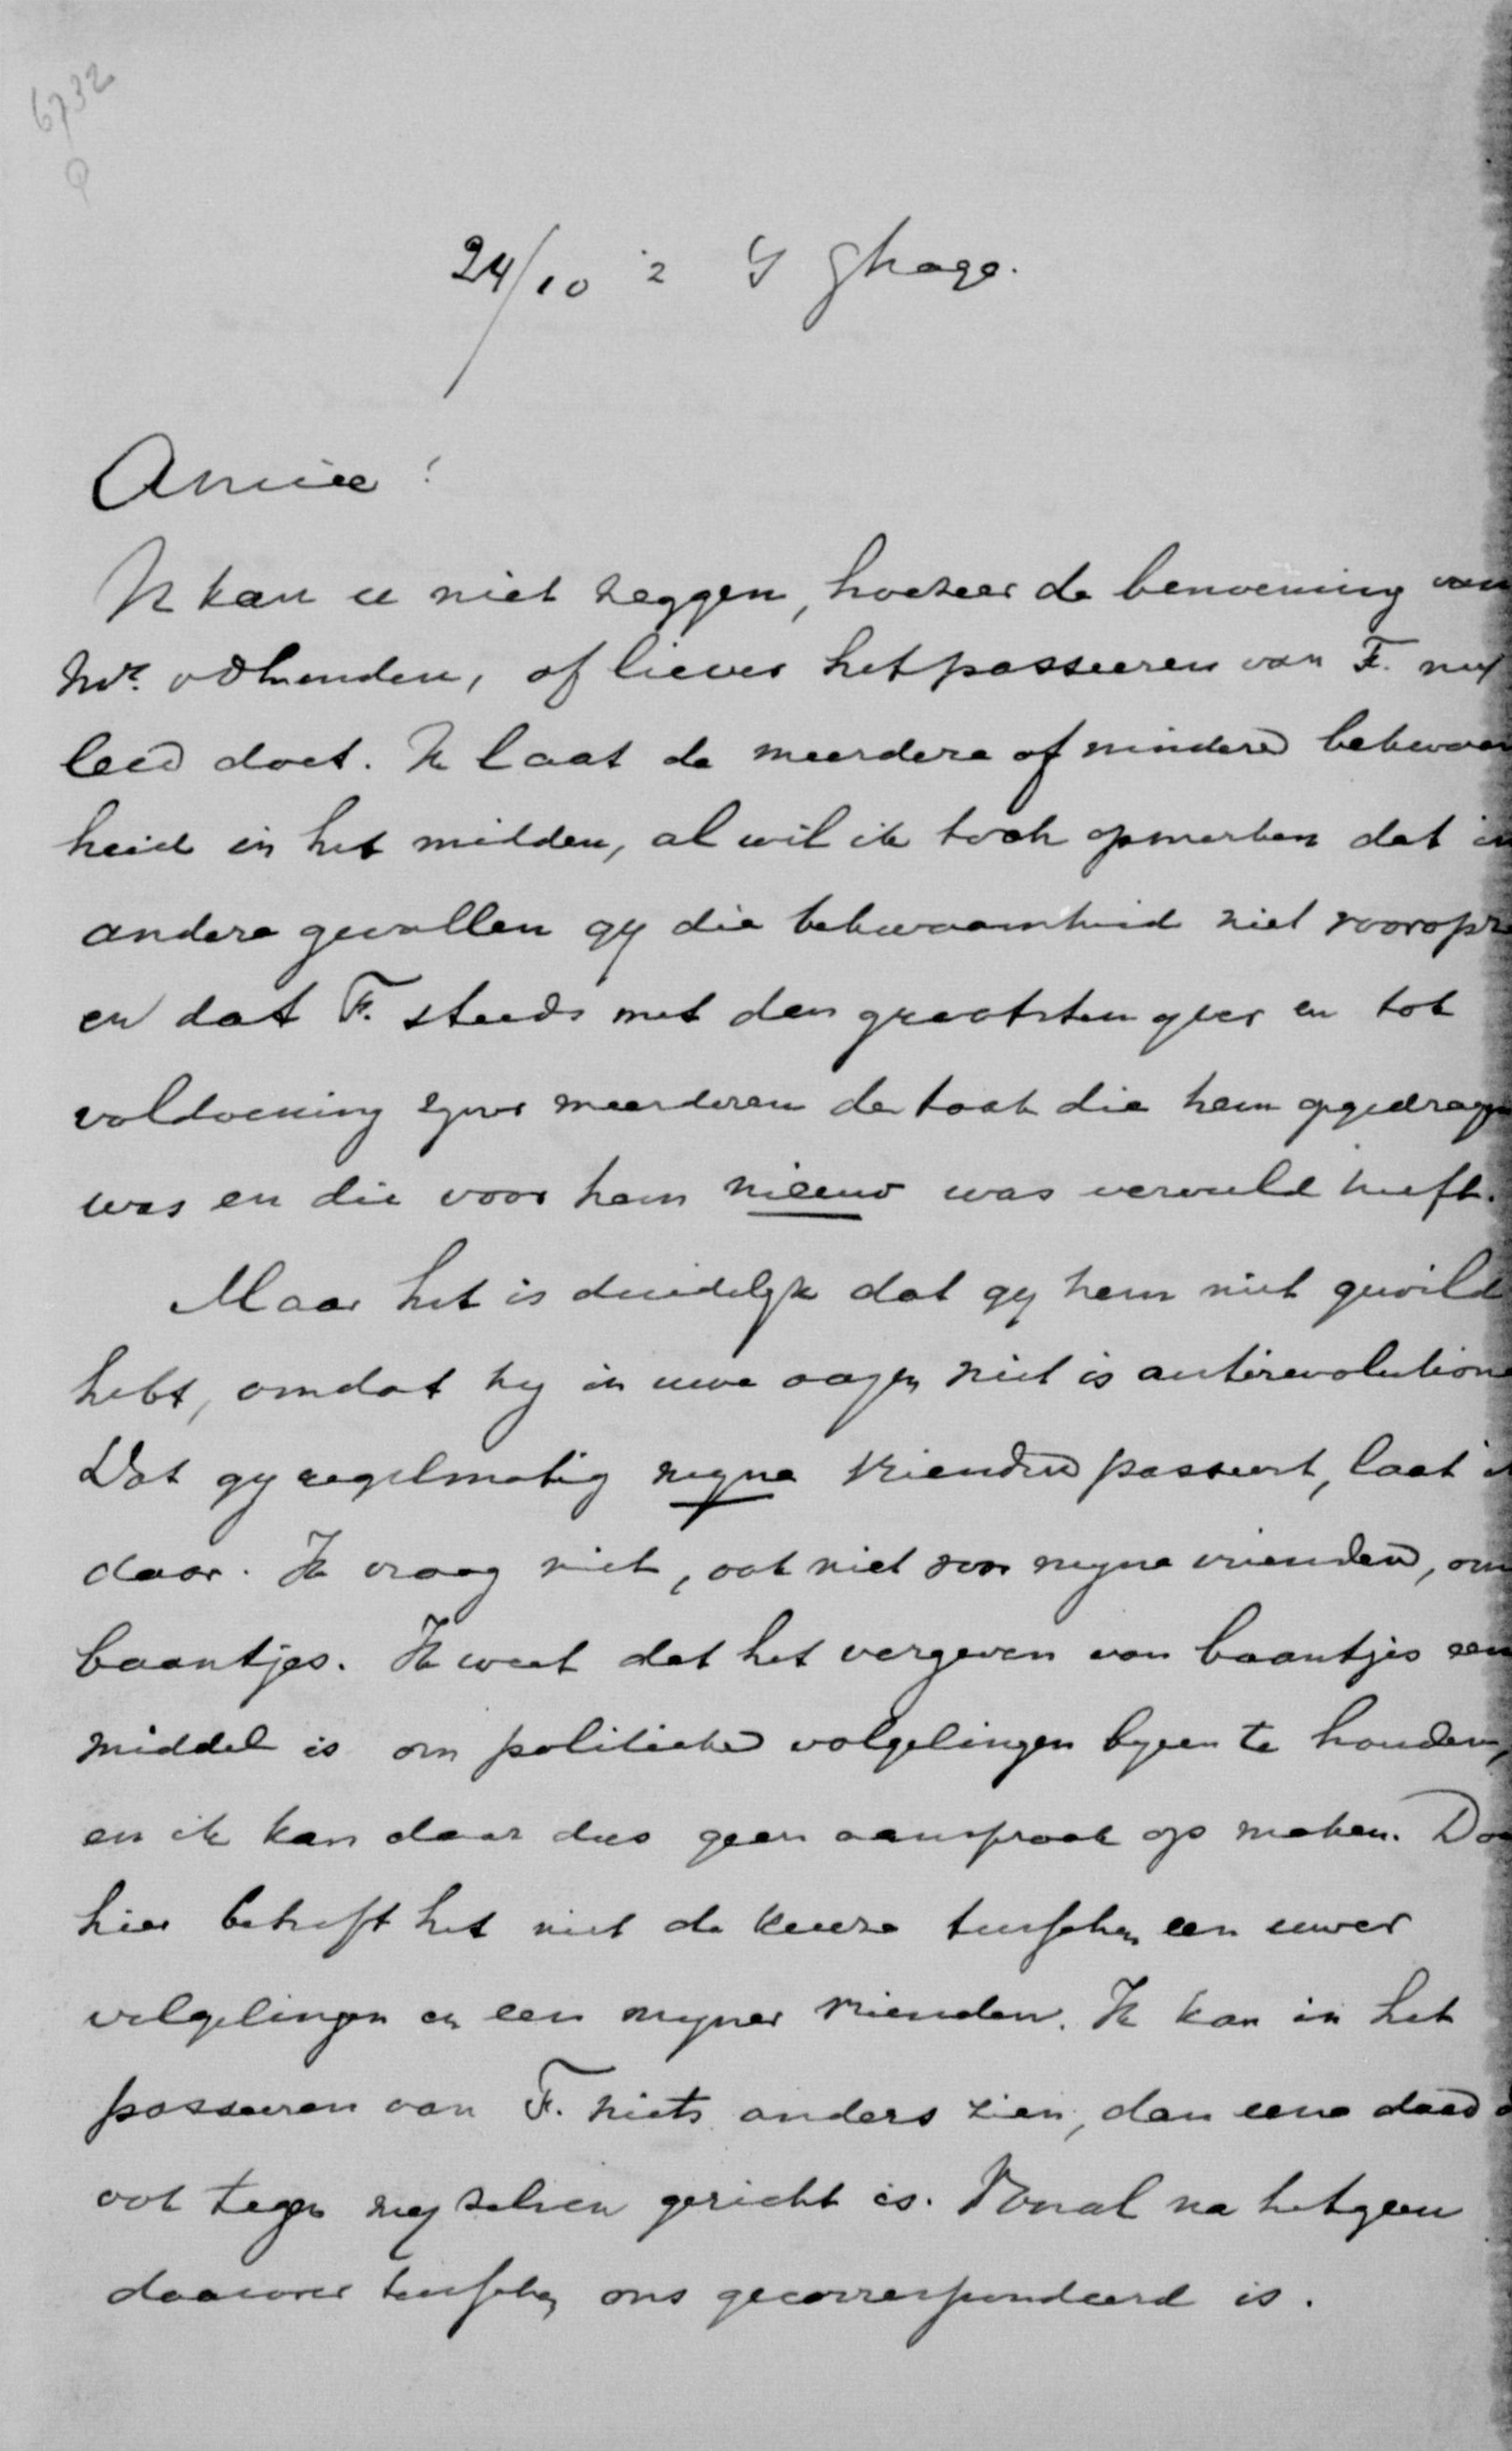 6732
24/10 '2 's Ghage.
Amice!
Ik kan u niet zeggen, hoezeer de benoeming van
Mr. vdLinden, of liever het passeeren van F. my
leed doet. Ik laat de meerdere of mindere bekwaam
heid in het midden, al wil ik toch opmerken dat in
andere gevallen gy die bekwaamheid niet voorop
en dat F. steeds met den grootsten yver en tot
voldoening zyner meerderen de taak die hem opgedragen
was en die voor hem nieuw was vervuld heeft.
Maar het is duidelyk dat gy hem niet gewild
hebt, omdat hy in uwe oogen niet is antirevolution
Dat gy regelmatig myne vrienden passeert, laat ik
daar. Ik vraag niet, ook niet voor myne vrienden, om
baantjes. Ik weet dat het vergeven van baantjes een
middel is om politieke volgelingen byeen te houden,
en ik kan daar dus geen aanspraak op maken. Doch
hier betreft het niet de keuze tusschen een uwer
volgelingen en een myner vrienden. Ik kan in het
passeeren van F. niets anders zien, dan eene daad d
ook tegen my zelven gericht is. Vooral na hetgeen
daarover tusschen ons gecorrespondeerd is.